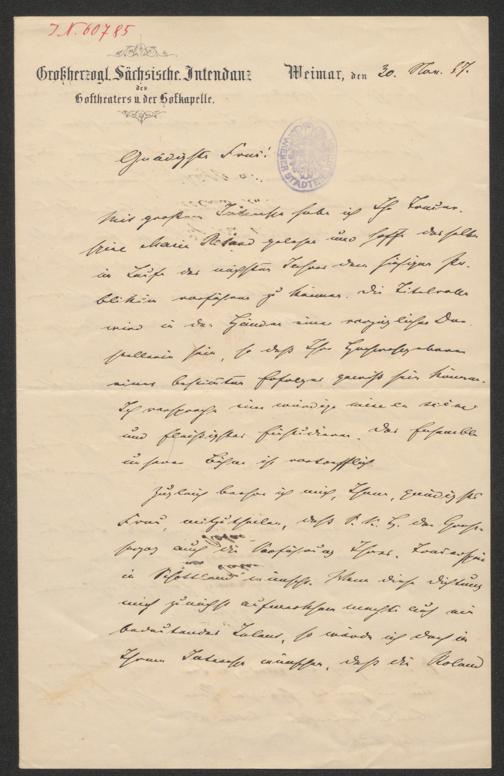 J.N. 60785
Großherzogl. Sächsische Intendanz
des
Hoftheaters u. der Hofkapelle.
Weimar, den 30. Nov. 87.
Gnädigste Frau!
Mit großem Interesse habe ich Ihr Trauer-
spiel Marie Roland gelesen und hoffe dasselbe
im Laufe des nächsten Jahres dem hiesigen Pu-
blikum vorführen zu können. Die Titelrolle
wird in den Händen einer vorzüglichen Dar-
stellerin sein, so daß Ihre Hochwohlgeboren
eines bestimmten Erfolges gewiß sein können.
Ich verspreche eine würdige mise en scène
und fleißigstes Einstudieren. Das Ensemble
unserer Bühne ist vortrefflich.
Zugleich beehre ich mich, Ihnen, gnädigste
Frau, mitzutheilen, daß S. K. H. der Groß-
herzog auch die Vorführung Ihres Trauerspiels
in Schottland wünscht. Wenn diese Dichtung
mich zunächst aufmerksam machte auf ein
bedeutendes Talent, so würde ich doch in
Ihrem Interesse wünschen, daß die Roland